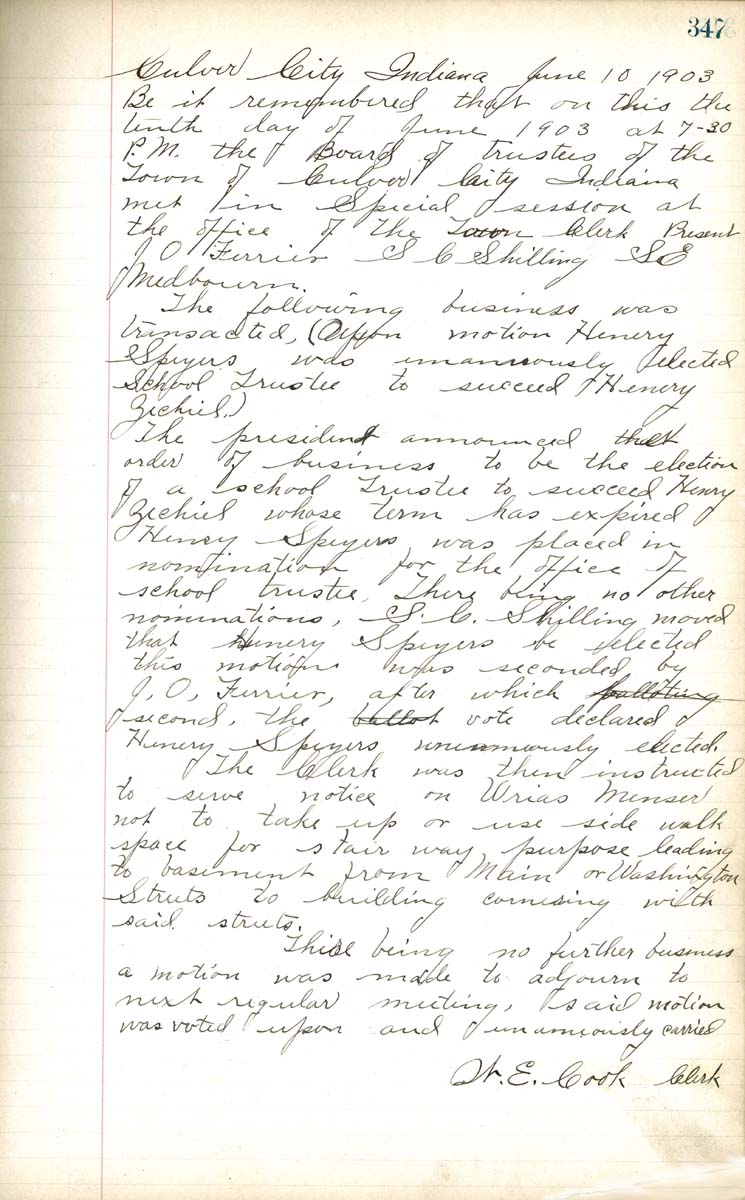 347
Culver City Indiana June 10 1903
Be it remembered that on this the
tenth day of June 1903 at 7-30
P.M. the Board of trustees of the
Town of Culver City Indiana
met in Special session at
the office of the Town Clerk Present
J O Ferrier S C Shilling S E
Medbourn.
The following business was
transacted, (Upon motion Henery
Speyers was unanimously elected
School Trustee to succeed Henery
Zechiel.)
The president announced that
order of business to be the election
of a school Trustee to succeed Henry
Zechiel whose term has expired
Henery Speyers was placed in
nomination for the office of
school trustee. There being no other
nominations, S. C. Shilling moved
that Henery Speyers be elected
this motion was seconded by
J, O, Ferrier, after which balloting
second, the ballot vote declared
Henery Speyers unanimously elected.
The Clerk was then instructed
to serve notice on Urias Menser
not to take up or use side walk
space for stair way purpose leading
to basement from Main or Washington
Streets to building cornering with
said streets.
There being no further business
a motion was made to adjourn to
next regular meeting, said motion
was voted upon and unanimously carried
W. E. Cook Clerk